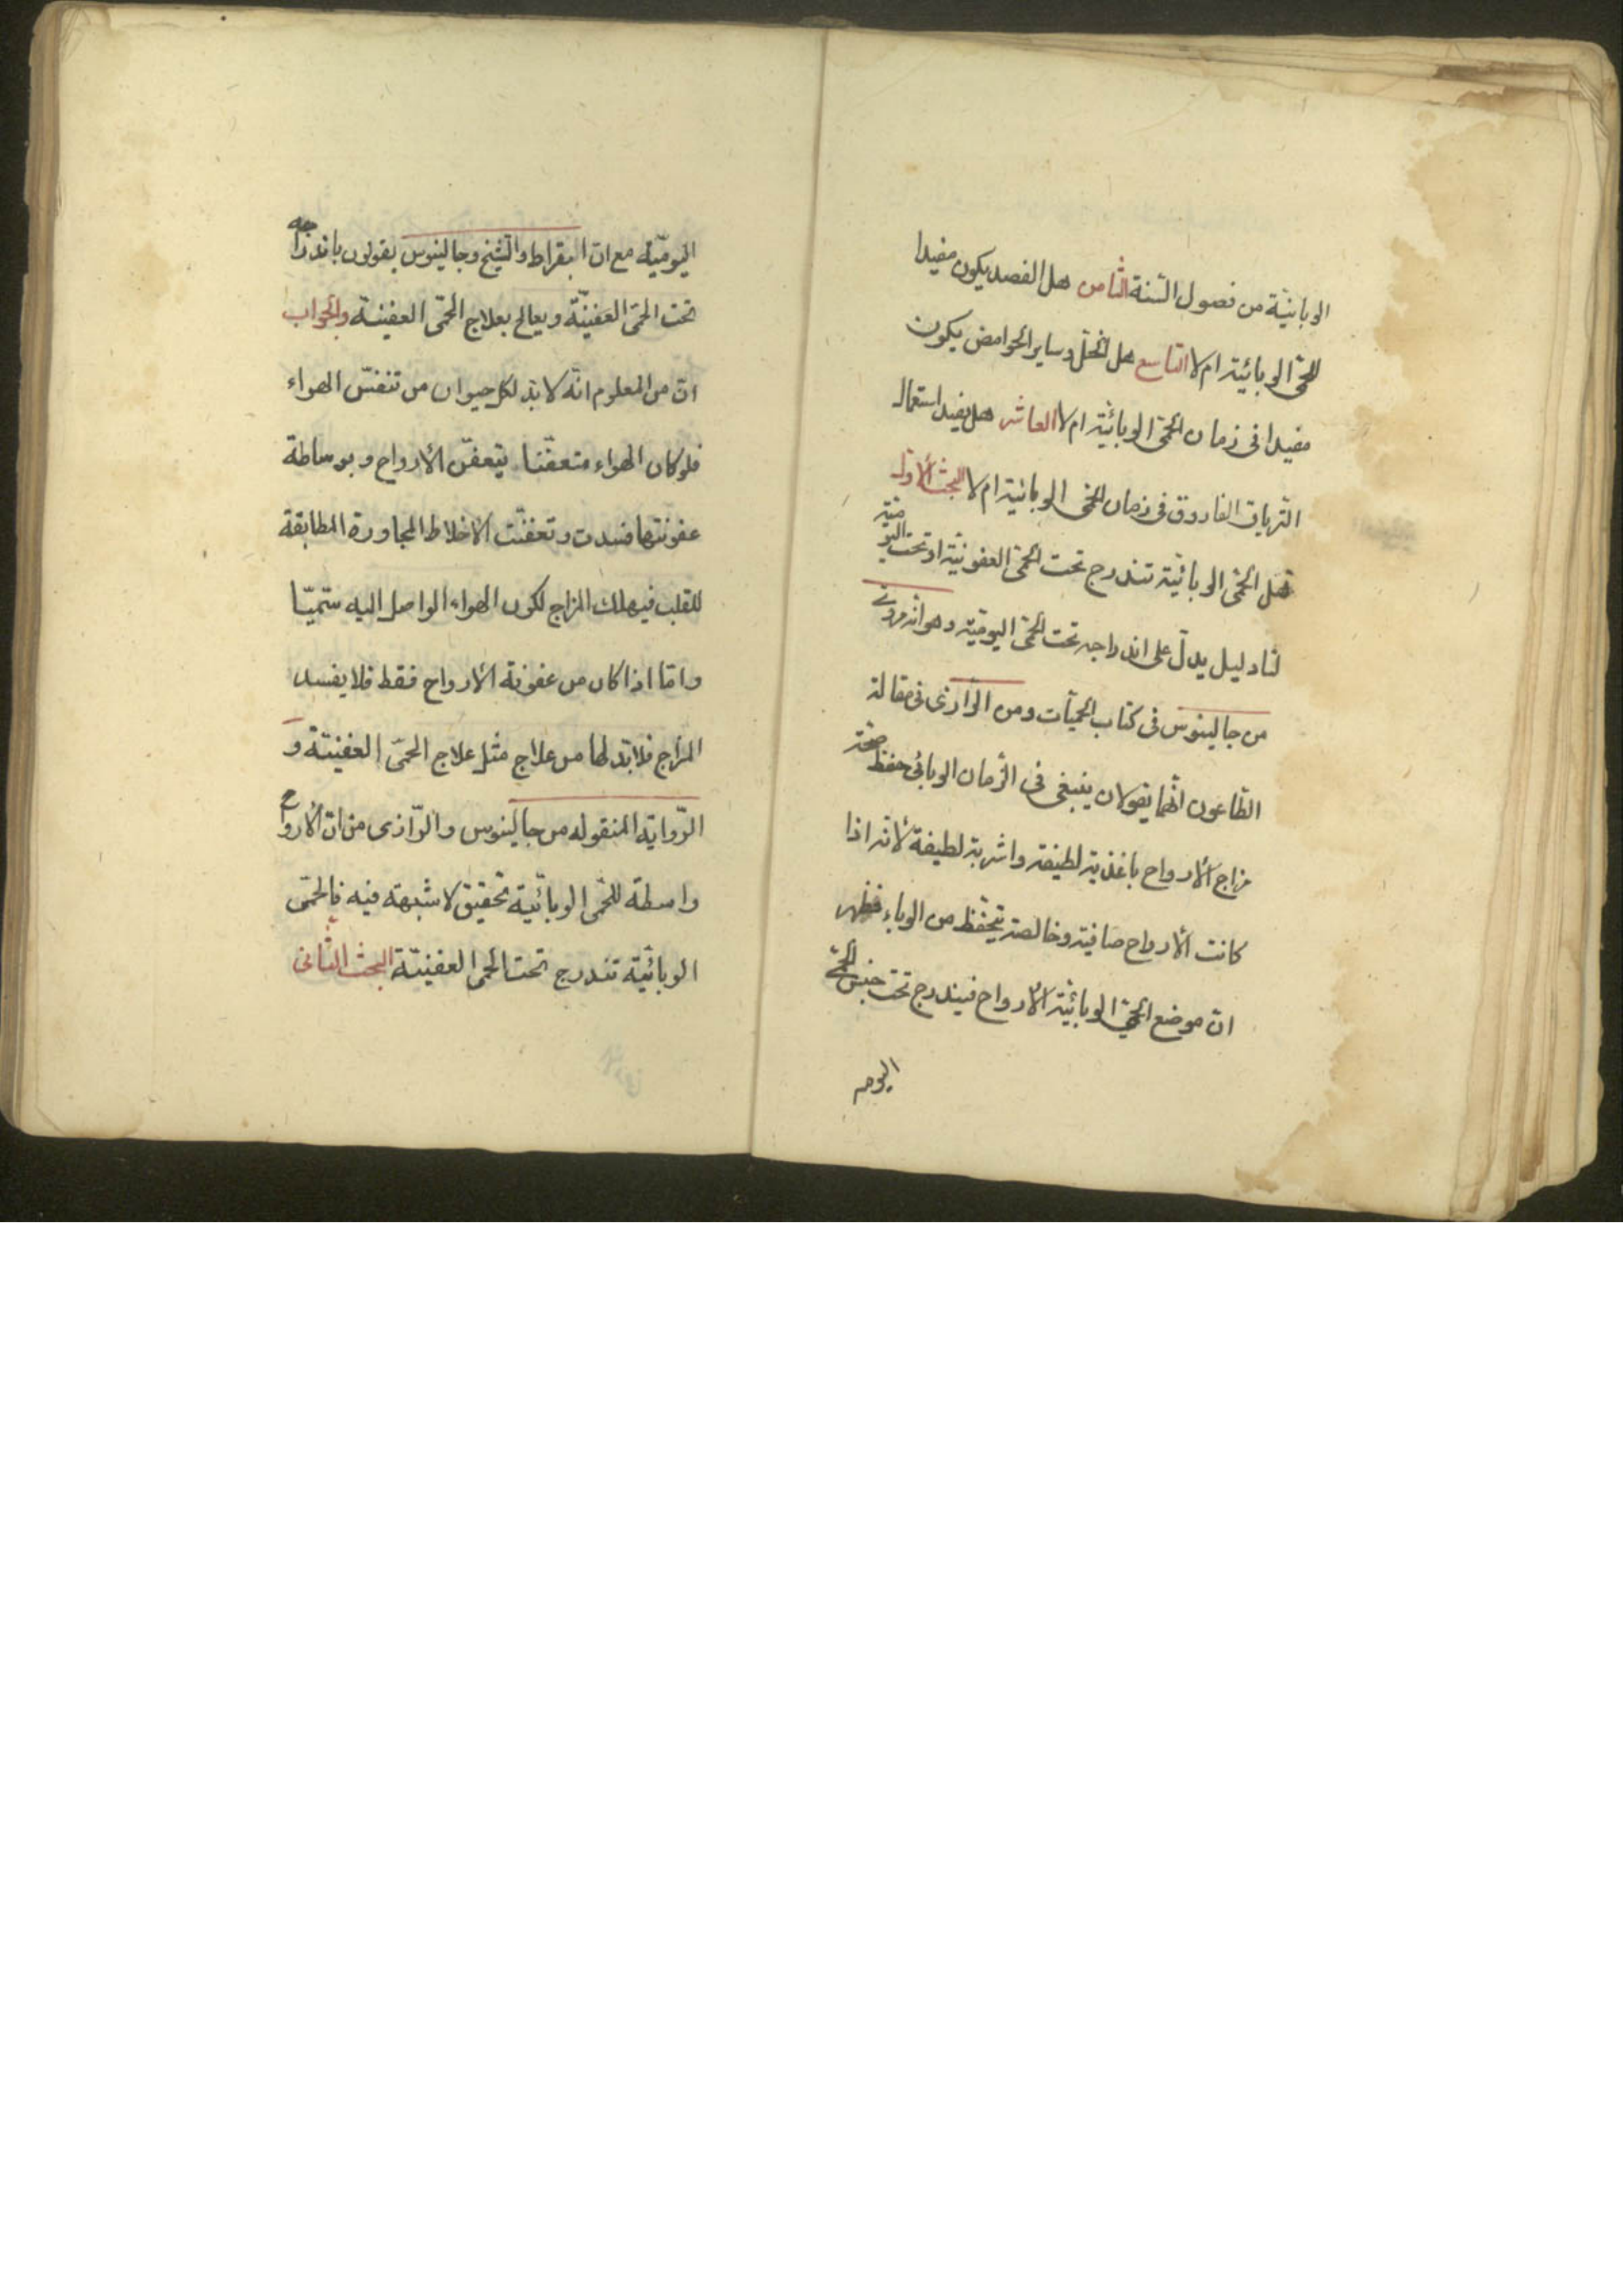 الوبائيّة من فصول السّنة الثامن هل الفصد يكون مفيدا
للحمّى الوبائيّة ام لا التاسع هل الخلّ وساير الحوامض يكون
مفيدا فى زمان الحمّى الوبائيّة ام لا العاشر هل يفيد استعمال
الترياق الفاروق فى زمان الحمّى الوبائية ام لا البحث الأوّل
هل الحمّى الوبائيّة تندرج تحت الحمّى العفونيّة او تحت اليوميّة
لنا دليل يدلّ على اندراجه تحت الحمّى اليوميّة وهو انّه مروىّ
من جالينوس فى كتاب الحميّات ومن الرّازى فى مقالة
الطّاعون انّهما يقولان ينبغى فى الزّمان الوبائى حفظ صحّة
مزاج الأرواح باغذية لطيفة واشربة لطيفة لأنّه اذا
كانت الأرواح صافية وخالصة يتحفّظ من الوباء فظهر
انّ موضع الحمّى الوبائيّة الأرواح فيندرج تحت جنس الحمّى
اليوم
اليوميّة مع انّ ابقراط والشّيخ وجالينوس يقولون باندراجه
تحت الحمّى العفينيّة ويعالج بعلاج الحمّى العفينية والجواب
انّ من المعلوم انّه لا بدّ لكل حيوان من تنفّس الهواء
فلو كان الهواء متعفّنا يتعفّن الأرواح وبوساطة
عفونتها فسدت وتعفنّت الأخلاط المجاورة المطابقة
للقلب فيهلك المزاج لكون الهواء الواصل اليه سمّيّا
وامّا اذا كان من عفونة الأرواح فقط فلا يفسد
المزاج فلا بدّ لها من علاج مثل علاج الحمّى العفينيّة و
الرّواية المنقوله من جالينوس والرّازى من انّ الأرواح
واسطة للحمّى الوبائيّة تحقيق لا شبهة فيه فالحمّى
الوبائيّة تندرج تحت الحمى العفينيّة البحث الثّانى